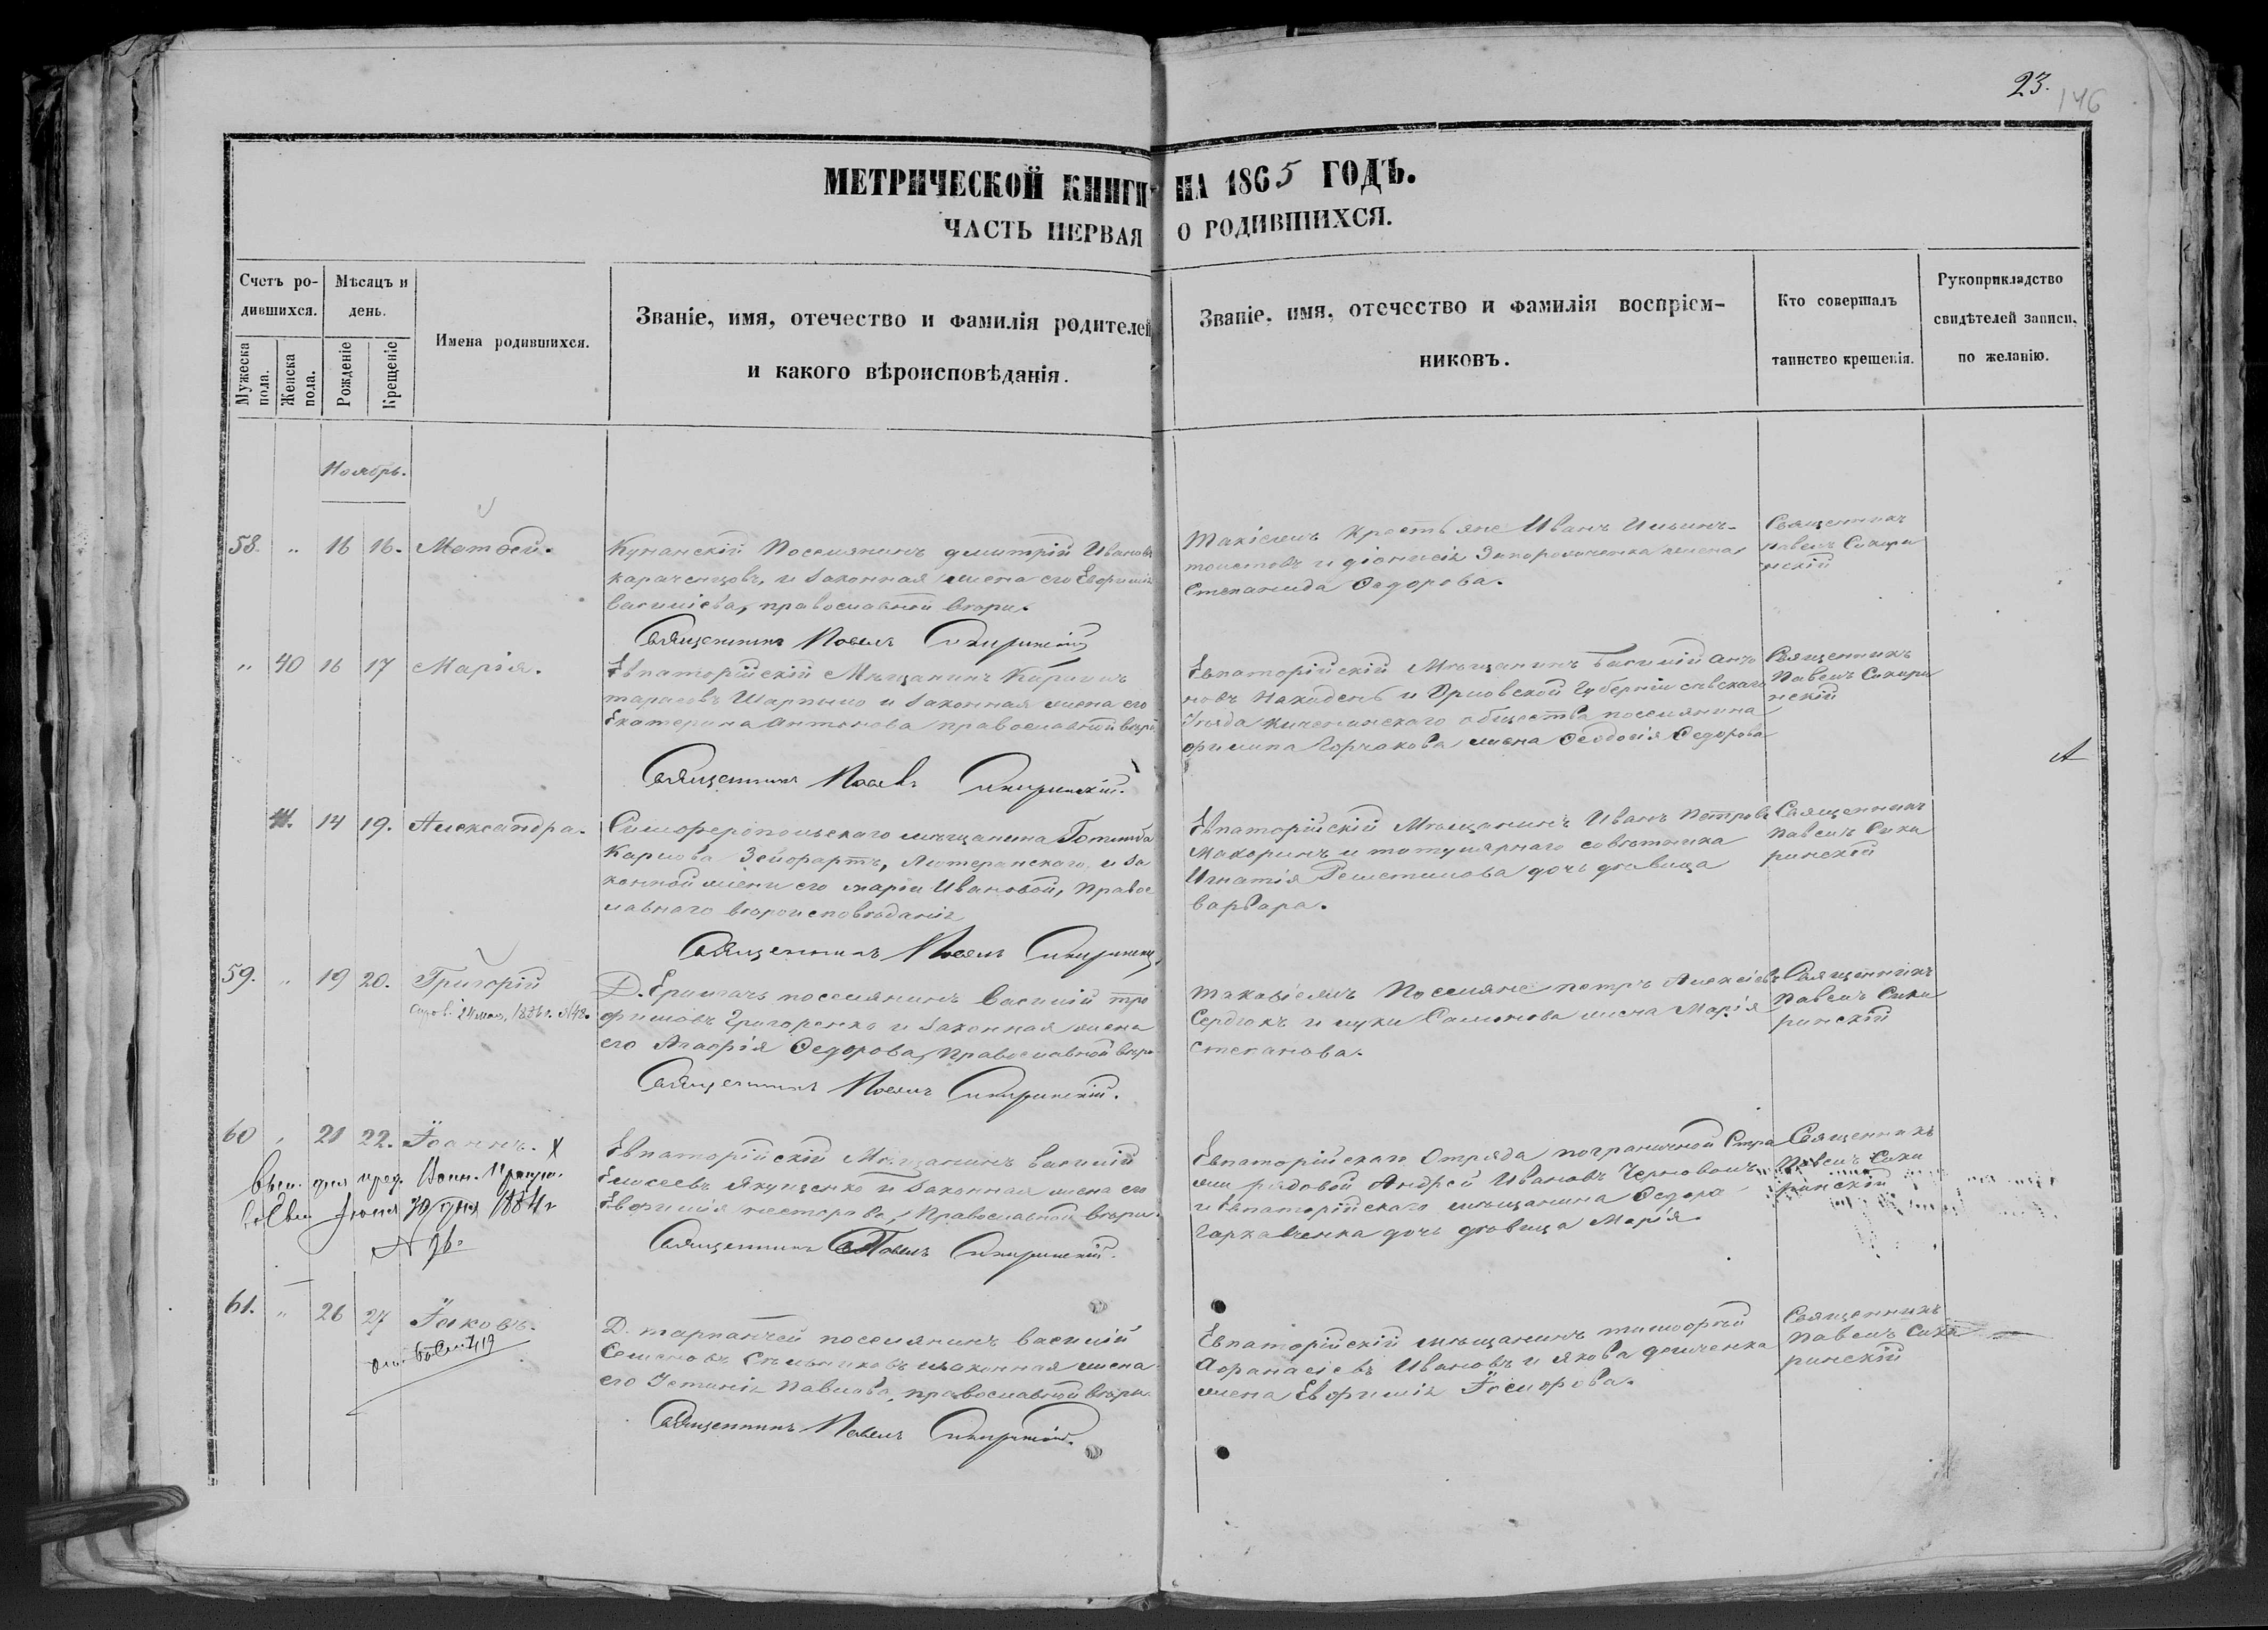 23.
146
МЕТРИЧЕСКОЙ КНИГИ НА 1865 ГОДЪ.
ЧАСТЬ ПЕРВАЯ О РОДИВШИХСЯ.
Счетъ ро-
дившихся.
Мужеска пола.
Женска пола.
Мѣсяцъ и
день.
Рожденіе
Крещеніе
Имена родившихся.
Званіе, имя, отечество и фамилія родителей
и какого вѣроисповѣданія.
Званіе, имя, отечество и фамилія воспріем-
никовъ.
Кто совершалъ
таинство крещенія.
Рукоприкладство
свидѣтелей записи,
по желанію.
Ноябрь.
58. " 16 16. Матѳей.
Кунанскій Поселянинъ Димитрій Ивановъ
Караченцовъ, и законная жена его Евфимія
Василіева, православной вѣры.
Священникъ Павелъ Сикиринскій
Такіемъ Крестьяне Иванъ Ильинъ
Толстовъ и Діонисія Запороженка жена
Степанида Ѳедорова.
Священникъ
Павелъ Сикири
нскій
" 40 16 17 Марія.
Евпаторійскій Мѣщанинъ Кириллъ
Тарасовъ Шарпыло и законная жена его
Екатерина Антонова православной вѣры
Священникъ Павелъ Сикиринскій.
Евпаторійскій Мѣщанинъ Василій Анто
новъ Находенъ и Орловской Губерніи Сѣвскаго
Уѣзда общества поселянина
Филиппа Горчакова жена Ѳеодосія Ѳедорова
Священникъ
Павелъ Сикири
нскій
41. 14 19. Александра.
Симферопольскаго мѣщанина Готлиба
Карлова Зейфартъ, Лютеранскаго и за
конной жены его Маріи Ивановой, Правос
лавнаго вѣроисповѣданія
Священникъ Павелъ Сикиринскій
Евпаторійскій Мѣщанинъ Иванъ Петровъ
Макоринъ и титулярнаго совѣтника
Игнатія Решетилова дочь дѣвица
Варвара.
Священникъ
Павелъ Сики
ринскій
59. " 19 20. Григорій
24 мая, 1886 г. №48.
Д. Ермгачъ поселянинъ Василій Тро
фимовъ Григоренко и законная жена
его Агафія Ѳедорова, Православной вѣры
Священникъ Павелъ Сикиринскій.
Поселяне Петръ Алексіевъ
Сердюкъ и Луки Салимова жена Марія
Степанова.
Священникъ
Павелъ Сики
ринскій
60 " 21 22. Іоаннъ. X
Выд. для пред. Воин. Присут.
Іюня 30 дня 1884 г
№ 96
Евпаторійскій Мѣщанинъ Василій
Елисеевъ Якущенко и законная жена его
Евфимія Нестерова, Православной вѣры.
Священникъ Павелъ Сикиринскій.
Евпаторійскаго Отряда пограничной Стра
жи рядовой Андрей Ивановъ
и Евпаторійскаго мѣщанина Ѳедора
Гаркавченка дочь дѣвица Марія.
Священникъ
Павелъ Сики
ринскій
61. " 26 27 Іаковъ.
Д. Тарпанчей поселянинъ Василій
Семеновъ и законная жена
его Устинія Павлова, православной вѣры.
Священникъ Павелъ Сикиринскій.
Евпаторійскій мѣщанинъ Тимофѣй
Афанасіевъ Ивановъ и Якова Демченка
жена Евфимія
Священникъ
Павелъ Сики
ринскій